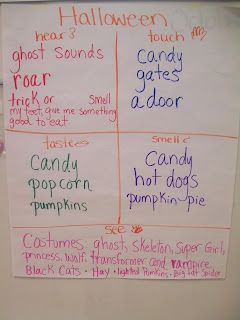 Halloween
hear
ghost sounds
roar
trick or smell
my feet, give me something
good to eat
touch
Candy
gates
a door
taste
Candy
popcorn
pumpkins
smell
Candy
hot dogs
pumpkin pie
see
Costumes, ghost, skeleton, Super Girl,
princess, Wolf, transformer and vampire,
Black Cats • Hay • lighted Pumkins • Big fat Spider